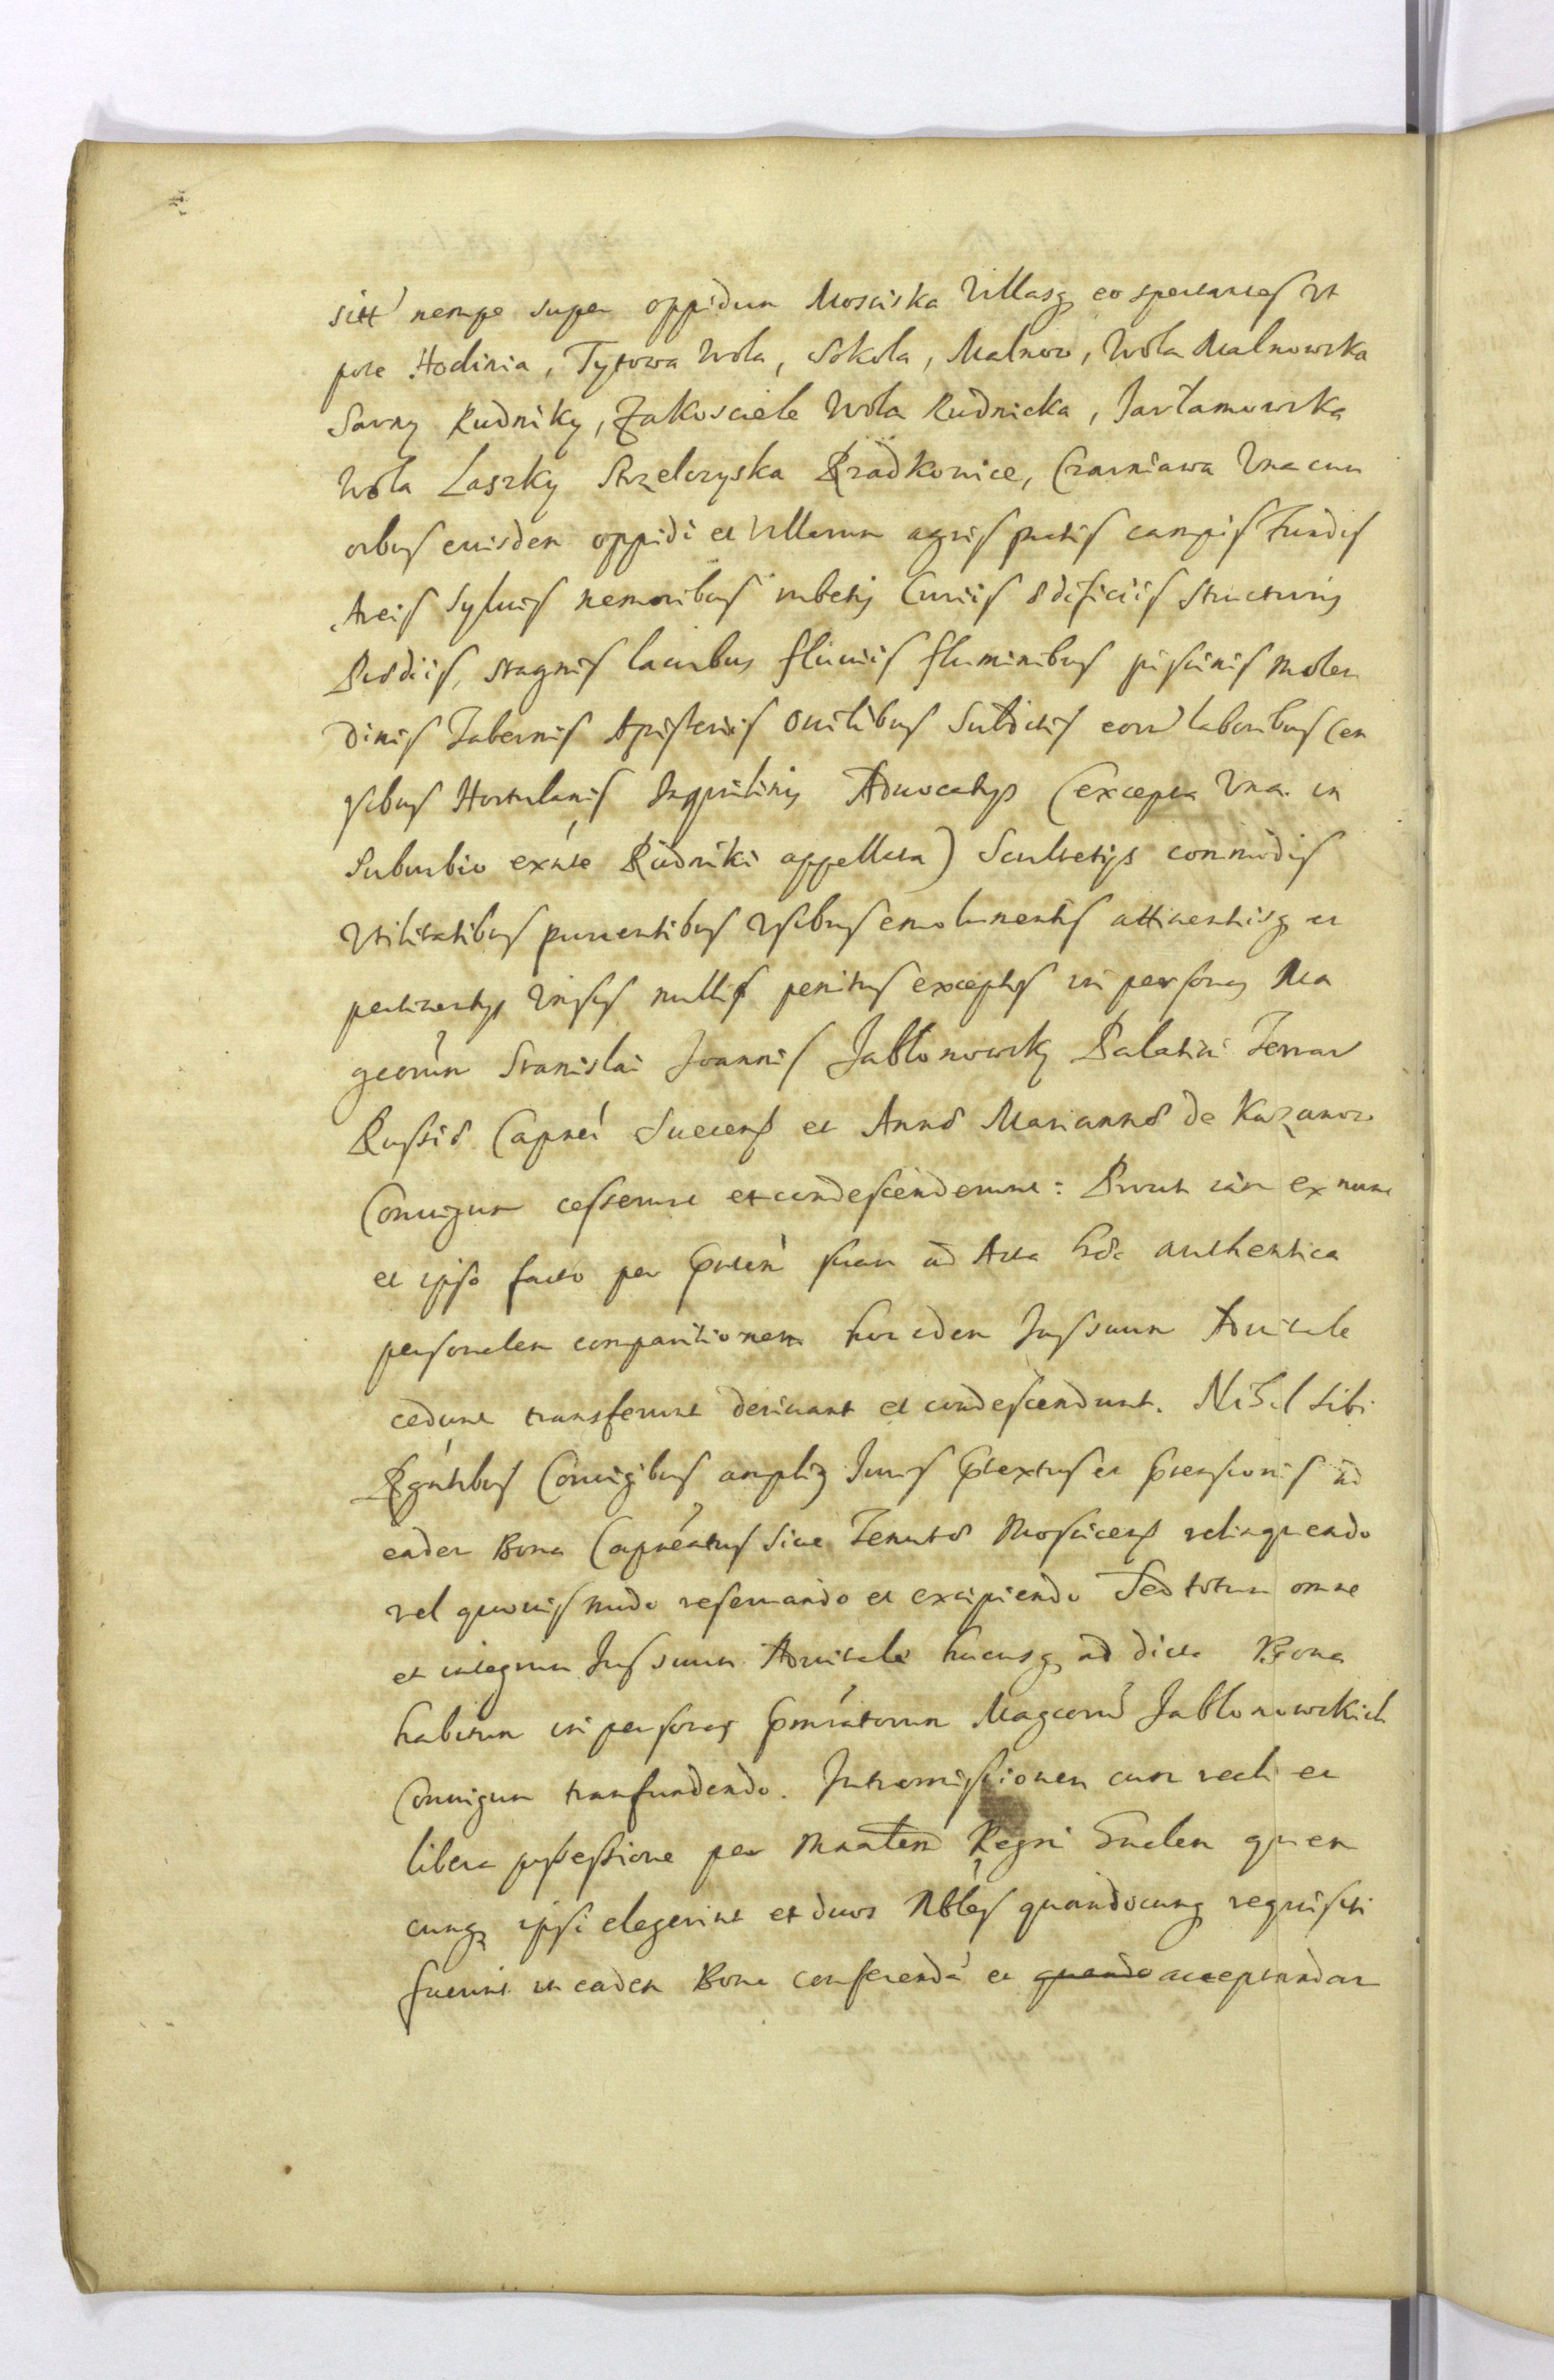 sitt nempe super oppidum Mosciska Villasq eo spectantes Vt
pote Hodinia, Tytowa Wola, Sokola, Malnow, Wola Malnowska
Sarny Rudniky, Zakosciele Wola Rudnicka, Jarłamowska
Wola Laszky Strzelczyska Rzadkowice, Czarniawa Vna cum
oibus eiusdem oppidi et Villarum agris pratis campis Fundis
Areis Syluis nemoribus rubetis Curiis ædificiis structuris
Prædiis, stagnis lacubus fluuiis fluminibus piscinis molen
dinis Tabernis Apisteriis Ouilibus Subditis eorū laboribus Cen
sibus Hortulanis Inquilinis Aduocatys (excepta Vna in
Suburbio exñte Rudniki appellata) Scultetys commodis
Vtilitatibus prouentibus Vsibus emolumentis attinentisq et
pertinentys Vnisis nullis penitus exceptis in personas Ma
gcorum Stanislai Joannis Jabłonowsky Palatini Terrar
Russiæ Capnei Suecens et Annæ Mariannæ de Kazanow
Coniugum cesserunt et condescenderunt: Prout iam ex nunc
et ipso facto per pntem suam ad Acta hæc authentica
personalem comparitionem hoc idem Jus suum Aduitale
cedunt transferunt deriuant et condescendunt. Nihil sibi
Rgntibus Coniugibus ampliq Juris ptextus et ptensionis ad
eadem Bona Capneatus siue Tenutæ Moscicens relinquendo
vel quouis modo reseruando et excipiendo Sed totum omne
et integrum Jus suum Aduitale hucusq ad dicta Bona
habitum in personas pmiatorum Magcorū Jablonowskich
Coniugum transfundendo. Intromissionem cum reali et
libera possessione per Mnalem Regni Gnalem quem
cunq ipsi elegerint et duos Nbles quandocunq requisiti
fuerint in eadem Bona conferendā et quando acceptandam